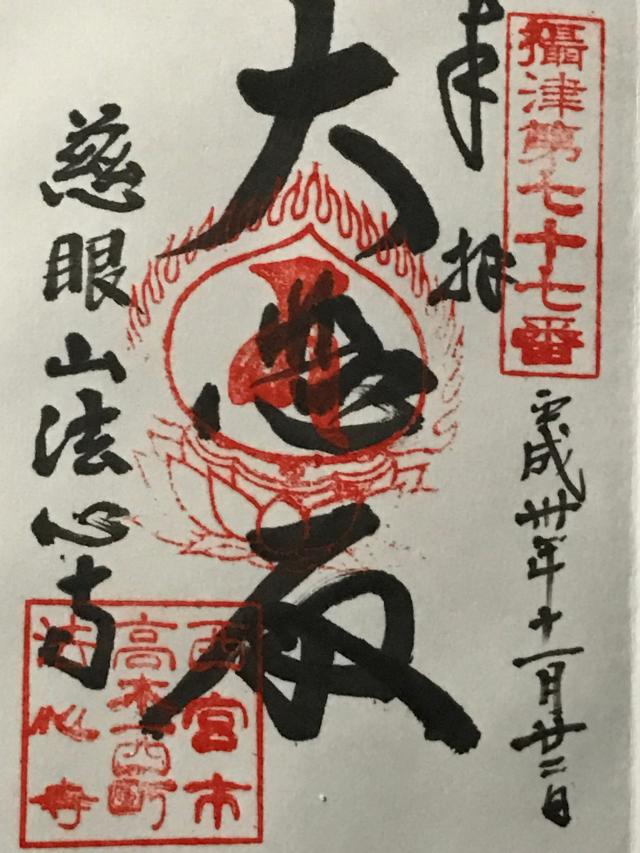 攝津第七十七番
平成卅年十一月廿二日
奉拝
大悲殿
慈眼山法心寺
西宮市
高木西町
法心寺